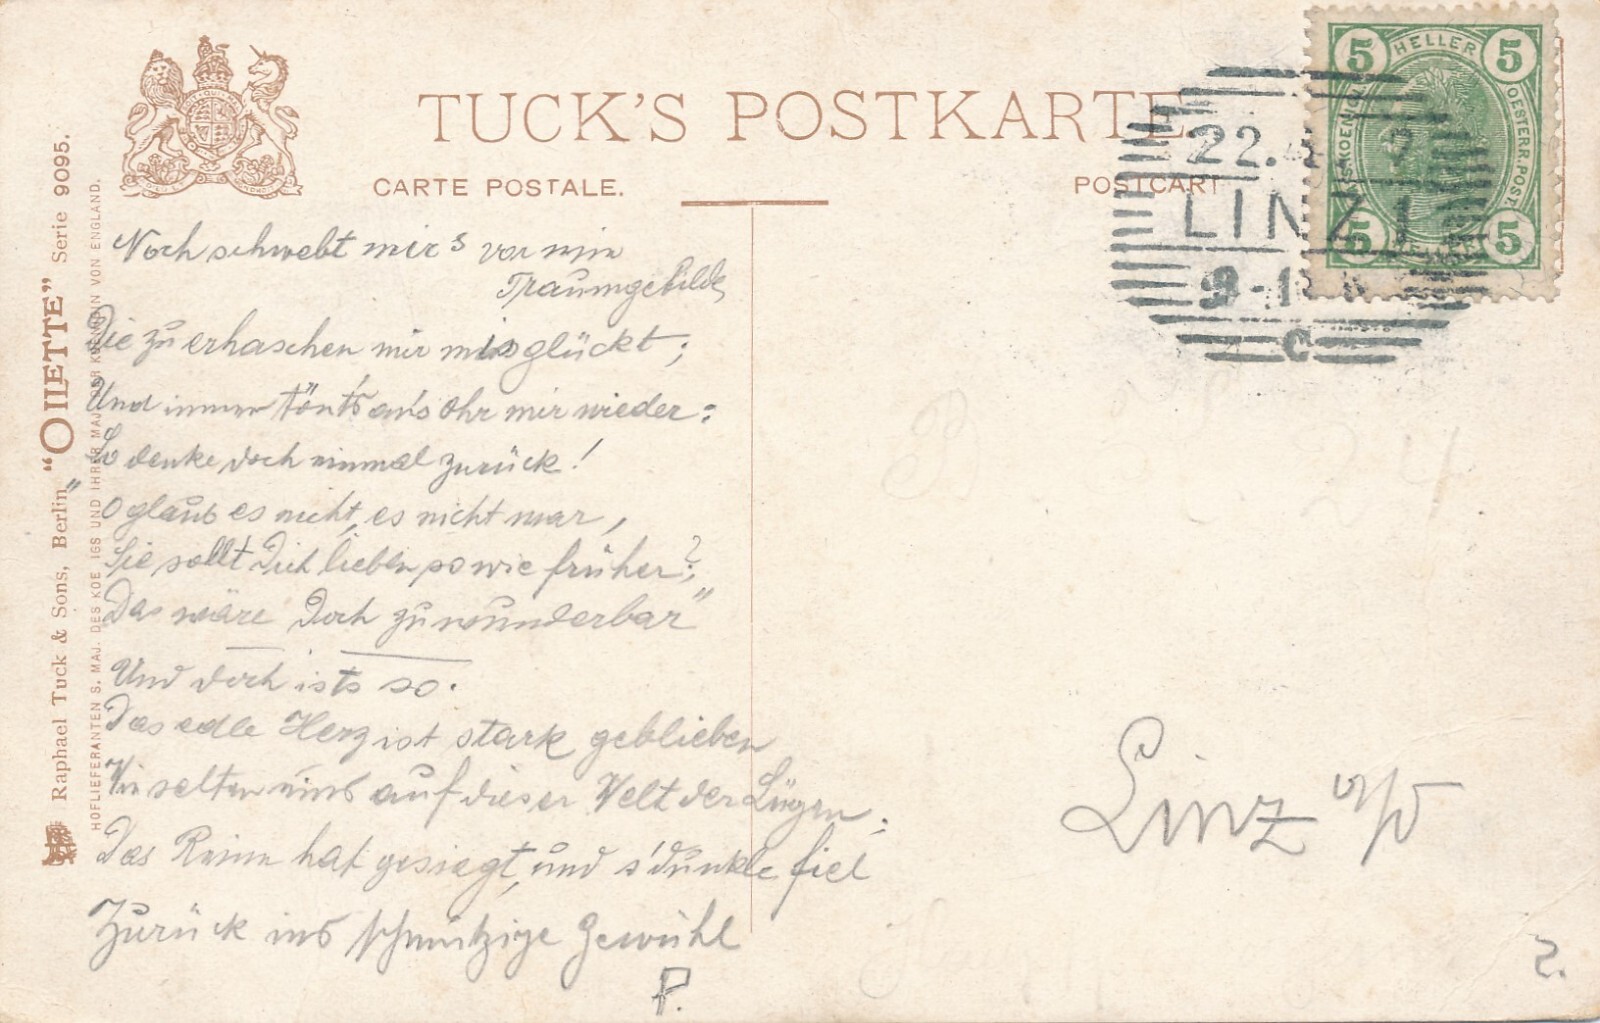 TUCK'S POSTKARTE
CARTE POSTALE.
POSTCART
"OILETTE" Serie 9095.
Raphael Tuck & Sons, Berlin
HOFLIEFERANTEN S. MAJ. DES KOE IGS UND IHRER MAJ. DER KOENIGIN VON ENGLAND.
5 HELLER 5
OESTERR. POST.
5 5
22.
LINZ 1
9-1
C
Noch schwebt mir's vor ein
Traumgebilde
Die zu erhaschen mir missglückt;
Und immer tönt's an's Ohr mir wieder:
So denke doch einmal zurück!
O glaub es nicht, es nicht war,
Sie sollt Dich lieben so wie früher?;
Das wäre Doch zu wunderbar"
Und doch ists so.
Das edle Herz ist stark geblieben
Wie selten eins auf dieser Welt der Lügen;
Das Reine hat gesiegt, und s'dunkle fiel
Zurück ins schmützige Gewühl
P.
Linz a/D
2.